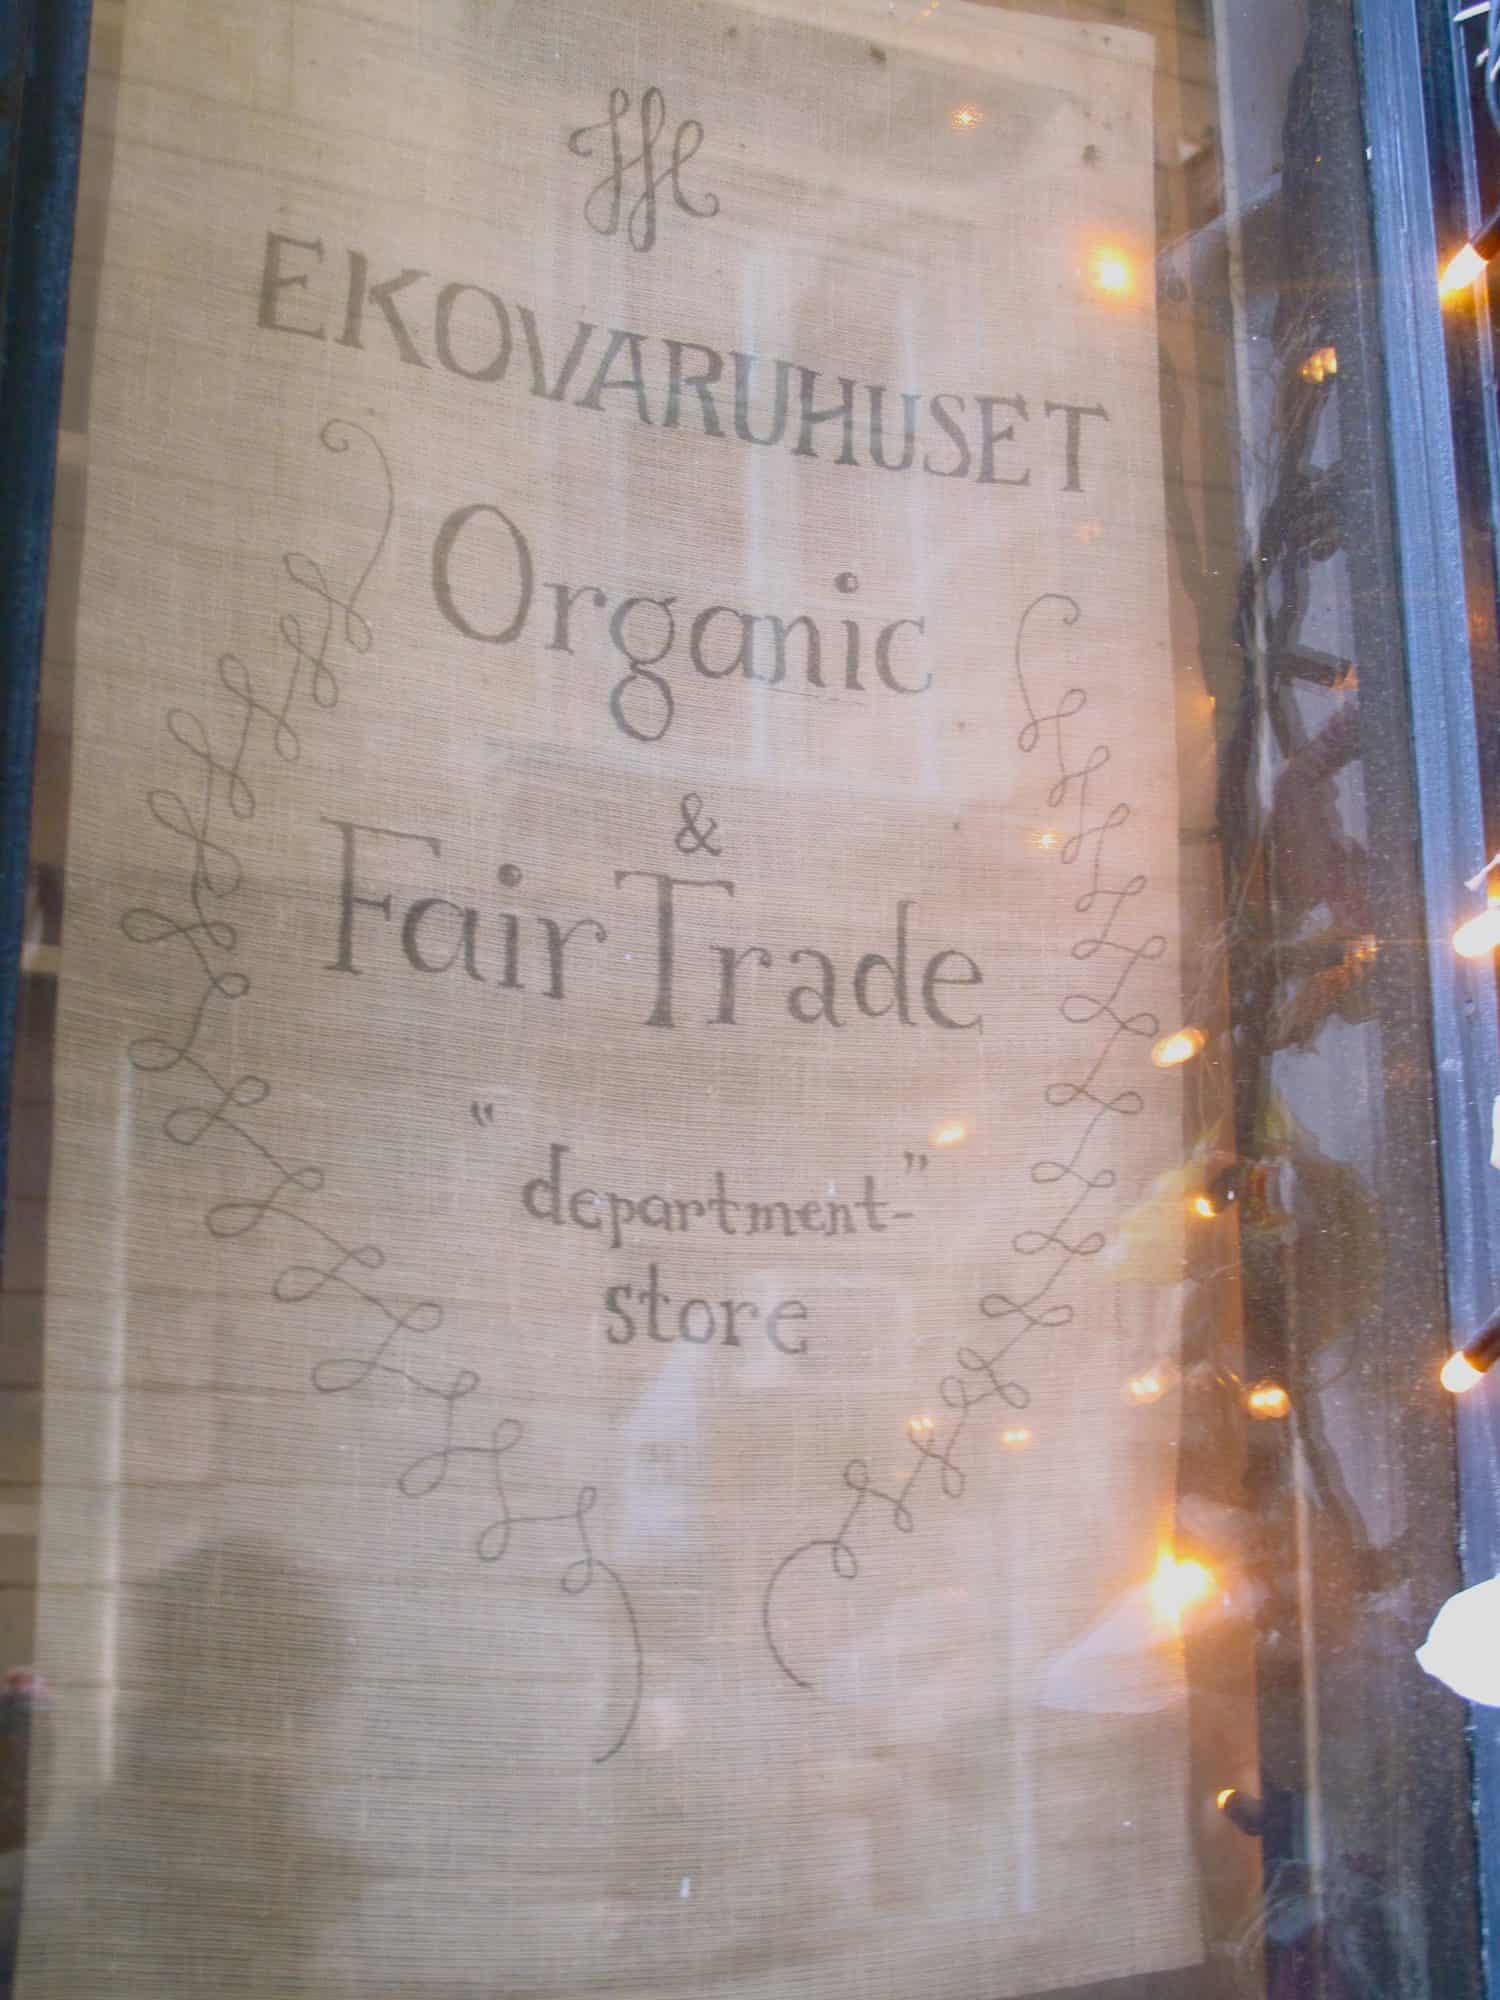 EKOVARUHUSET
Organic
&
Fair Trade
"department-"
store